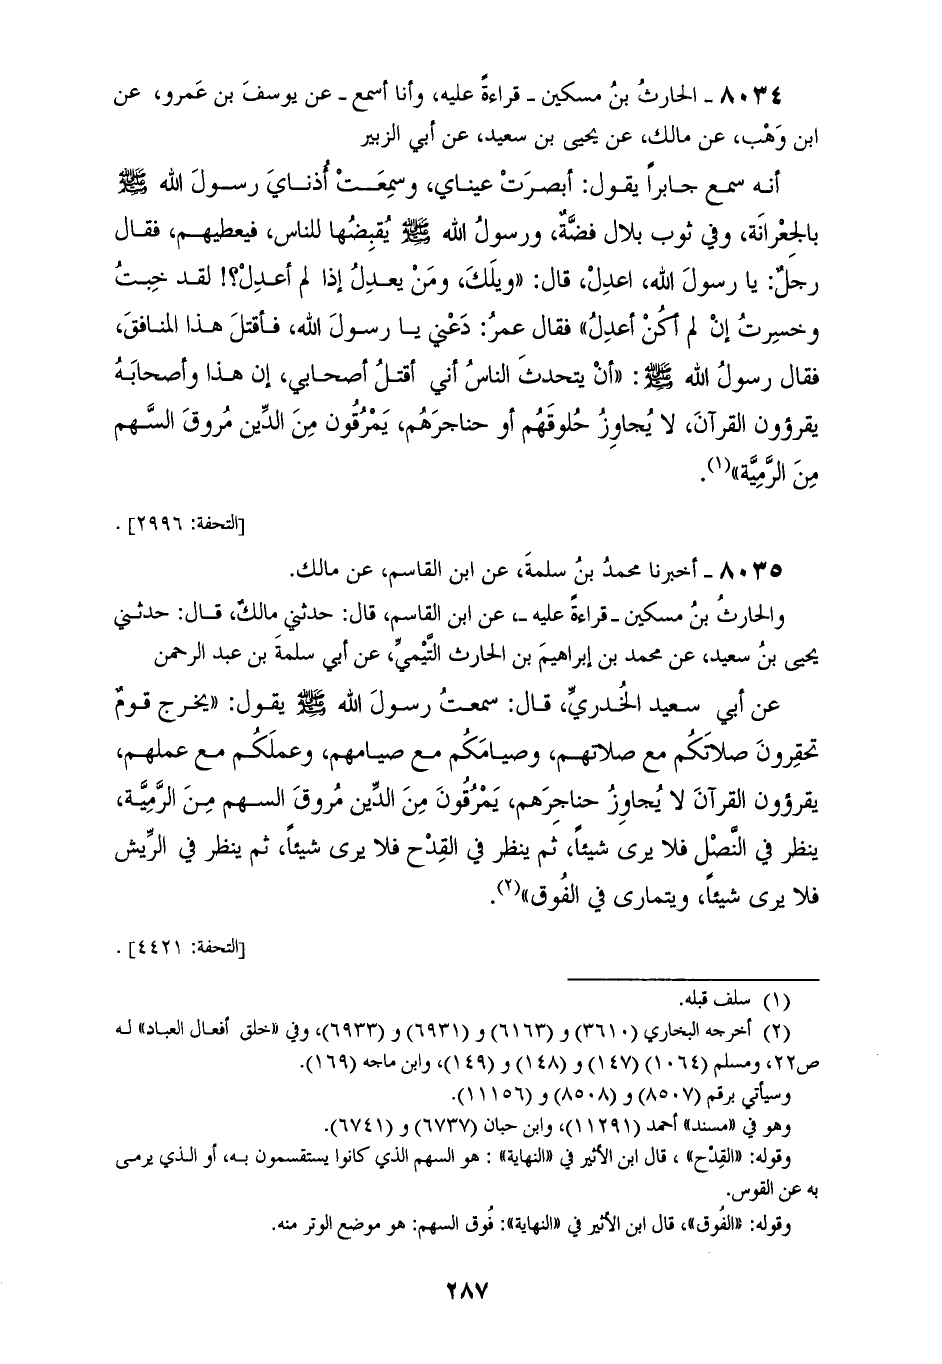 ٨٠٣٤ ـ الحارثُ بنُ مسكين ـ قراءةً عليه، وأنا أسمع ـ عن يوسفَ بن عَمرو، عن
ابن وَهْب، عن مالك، عن يحيى بن سعيد، عن أبي الزبير
أنه سمع جابراً يقول: أبصرَتْ عيناي، وسمِعَتْ أُذنايَ رسولَ الله ﷺ
بالجِعْرانَة، وفي ثوب بلال فضَّةٌ، ورسولُ الله ﷺ يُقبِضُها للناس، فيعطيهم، فقال
رجلٌ: يا رسولَ الله، اعدِلْ، قال: «ويلَكَ، ومَنْ يعدِلُ إذا لم أعدِلْ؟! لقد خِبتُ
وخسِرتُ إنْ لم أكُنْ أعدِلُ» فقال عمرُ: دَعْني يا رسولَ الله، فأقتلَ هذا المنافقَ،
فقال رسولُ الله ﷺ: «أنْ يتحدثَ الناسُ أني أقتلُ أصحابي، إن هذا وأصحابَهُ
يقرؤون القرآنَ، لا يُجاوِزُ حُلوقَهُم أو حناجرَهُم، يَمْرُقُون مِنَ الدِّين مُروقَ السَّهم
مِنَ الرَّمِيَّة»(١).
[التحفة: ٢٩٩٦] .
٨٠٣٥ ـ أخبرنا محمدُ بنُ سلمةَ، عن ابن القاسم، عن مالك.
والحارثُ بنُ مسكين ـ قراءةً عليه ـ، عن ابن القاسم، قال: حدثني مالكٌ، قال: حدثني
يحيى بنُ سعيد، عن محمد بن إبراهيمَ بن الحارث التَّيْميِّ، عن أبي سلمةَ بن عبد الرحمن
عن أبي سعيد الخُدريِّ، قال: سمعتُ رسولَ الله ﷺ يقول: «يخرج قومٌ
تحقِرونَ صلاتَكُم مع صلاتهم، وصيامَكُم مع صيامهم، وعملَكُم مع عملهم،
يقرؤون القرآنَ لا يُجاوِزُ حناجِرَهم، يَمْرُقُونَ مِنَ الدِّين مُروقَ السهم مِنَ الرَّمِيَّة،
ينظر في النَّصْل فلا يرى شيئاً، ثم ينظر في القِدْح فلا يرى شيئاً، ثم ينظر في الرِّيش
فلا يرى شيئاً، ويتمارى في الفُوق»(٢).
[التحفة: ٤٤٢١] .
(١) سلف قبله.
(٢) أخرجه البخاري (٣٦١٠) و (٦١٦٣) و (٦٩٣١) و (٦٩٣٣)، وفي «خلق أفعال العباد» له
ص٢٢، ومسلم (١٠٦٤) (١٤٧) و (١٤٨) و (١٤٩)، وابن ماجه (١٦٩).
وسيأتي برقم (٨٥٠٧) و (٨٥٠٨) و (١١١٥٦).
وهو في «مسند» أحمد (١١٢٩١)، وابن حبان (٦٧٣٧) و (٦٧٤١).
وقوله: «القِدْح» ، قال ابن الأثير في «النهاية» : هو السهم الذي كانوا يستقسمون به، أو الذي يرمى
به عن القوس.
وقوله: «الفُوق»، قال ابن الأثير في «النهاية»: فُوق السهم: هو موضع الوتر منه.
٢٨٧